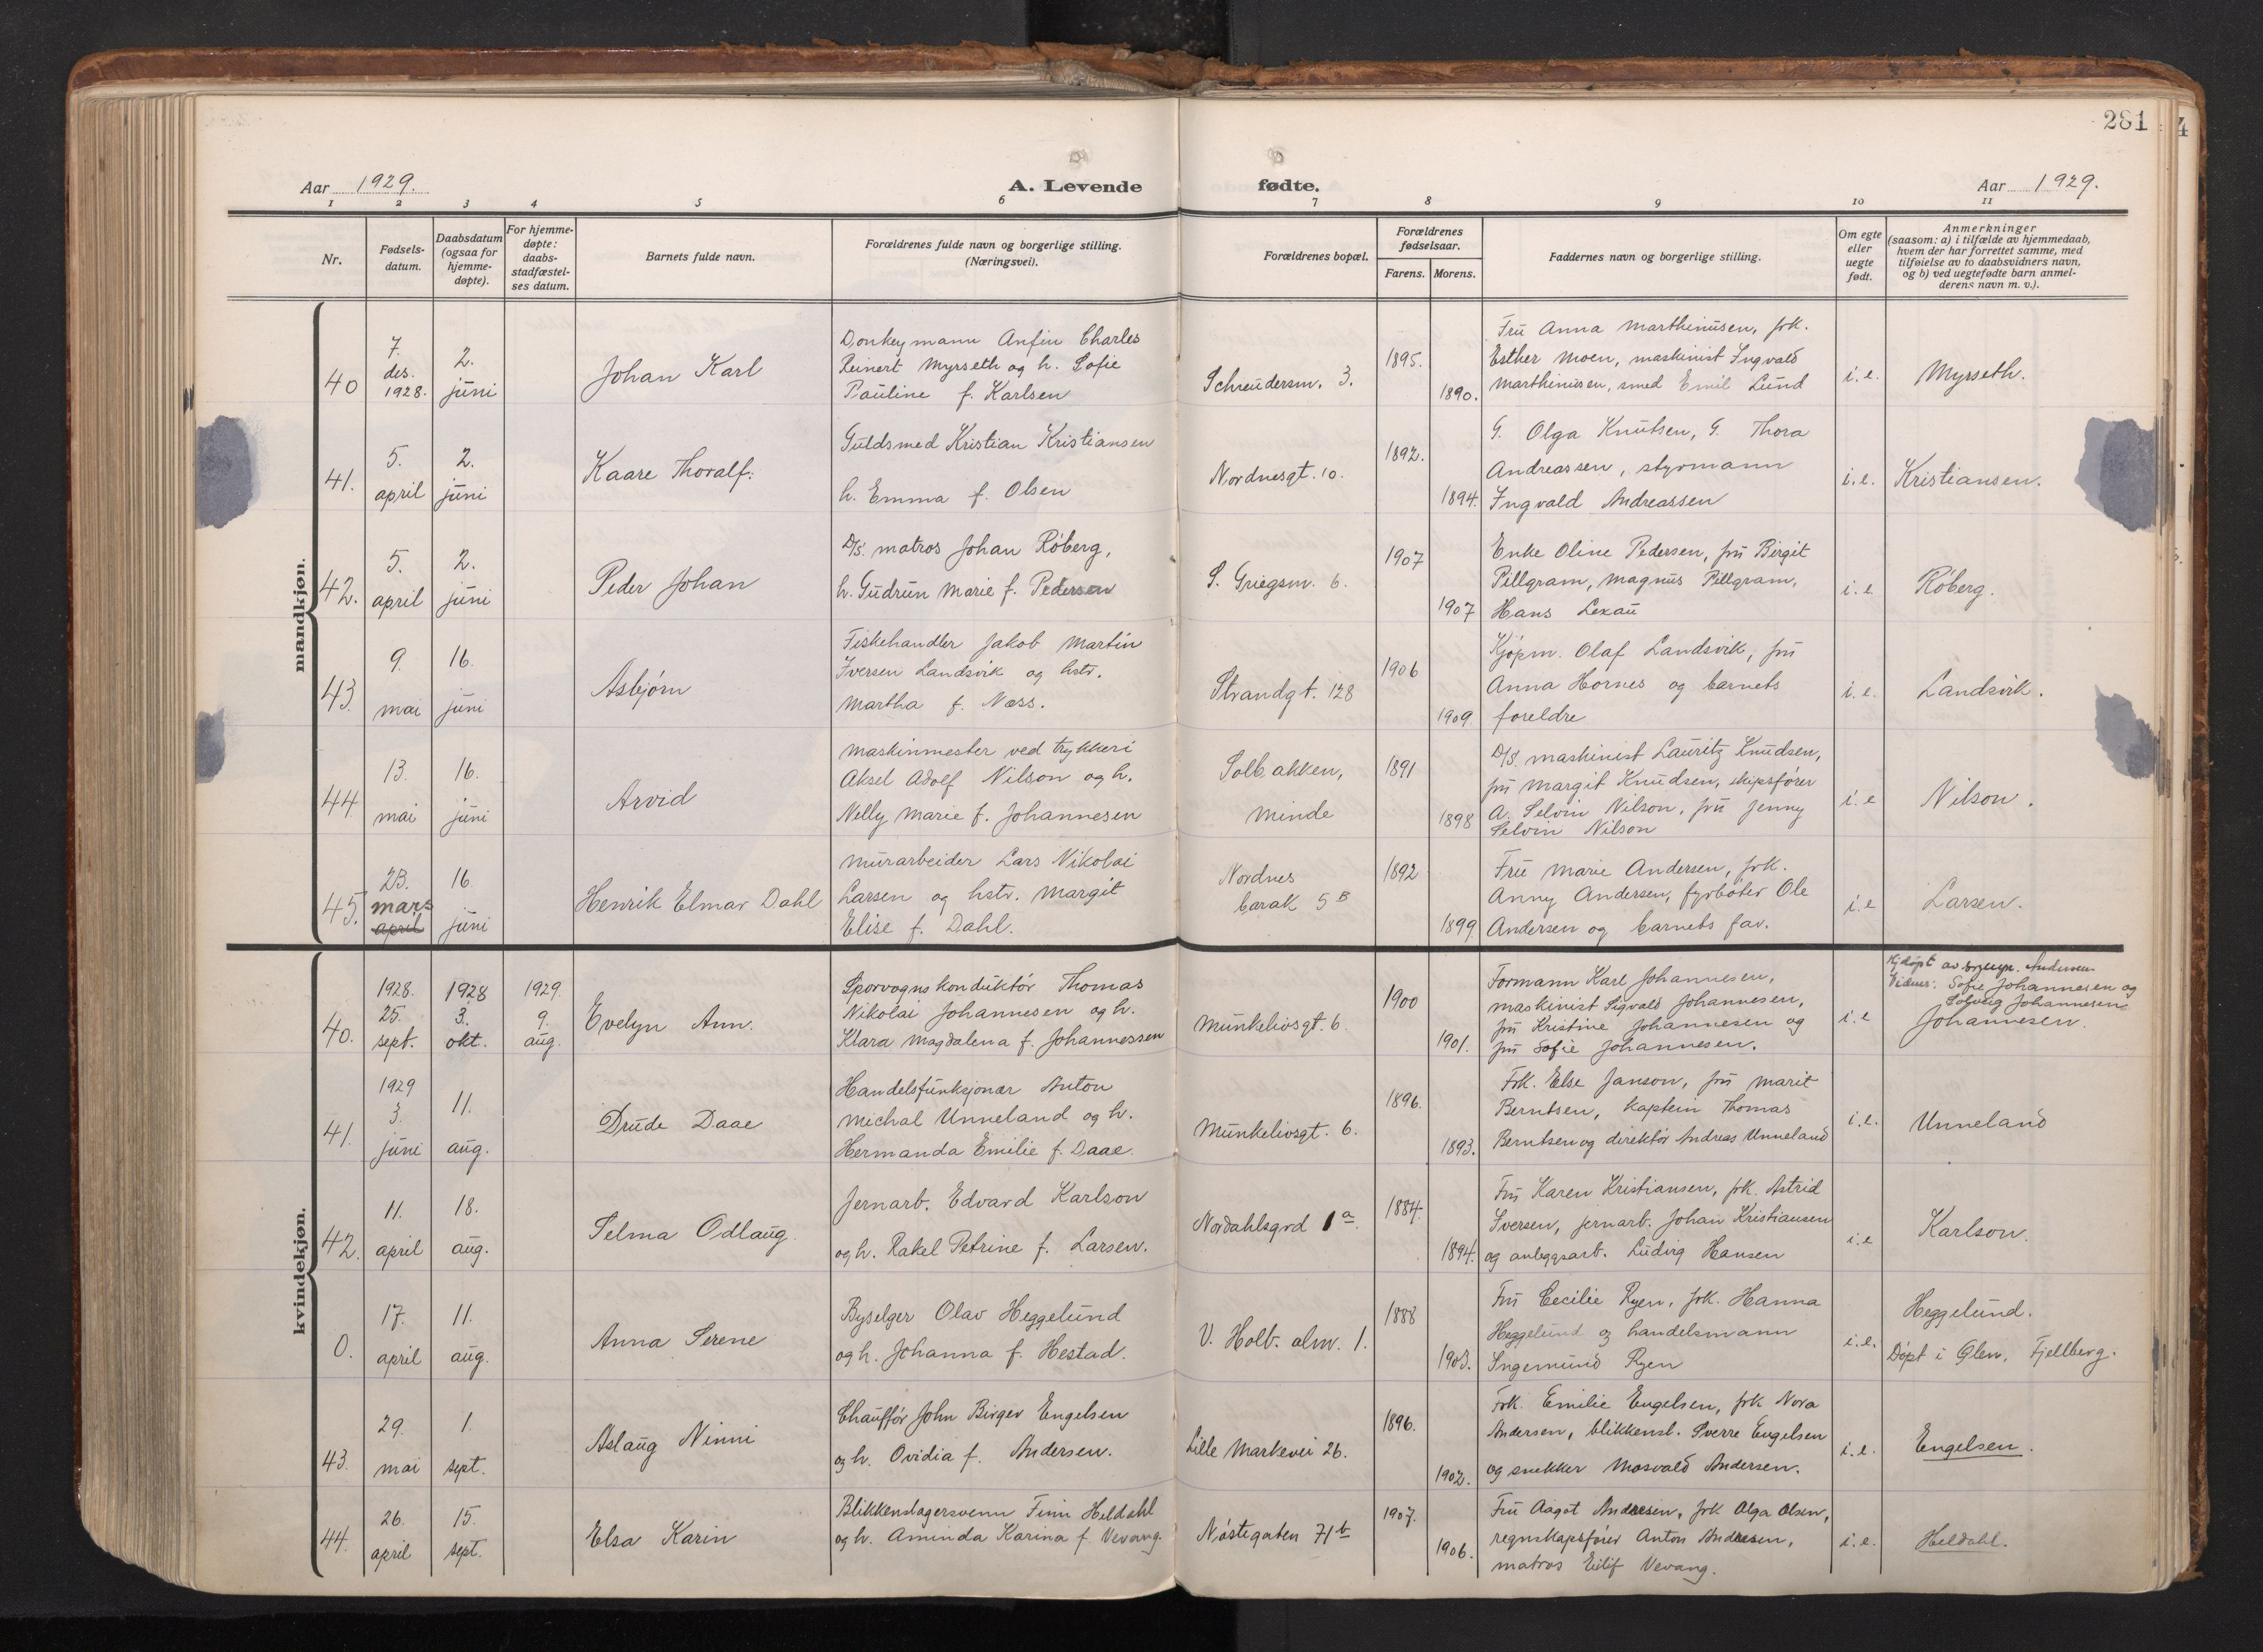 281
4
Aar 1929.
A. Levende
fødte.
Aar 1929.
1 2 3 4 5 6 7 8 9 10 11
Nr.
Fødsels-
datum.
Daabsdatum
(ogsaa for
hjemme-
døpte).
For hjemme-
døpte:
daabs-
stadfæstel-
ses datum.
Barnets fulde navn.
Forældrenes fulde navn og borgerlige stilling.
(Næringsvei).
Forældrenes bopæl.
Forældrenes
fødselsaar.
Farens. Morens.
Faddernes navn og borgerlige stilling.
Om egte
eller
uegte
født.
Anmerkninger
(saasom: a) i tilfælde av hjemmedaab,
hvem der har forrettet samme, med
tilføielse av to daabsvidners navn,
og b) ved uegtefødte barn anmel-
derens navn m. v.).
mandkjøn.
40
7.
des.
1928.
2.
juni
Johan Karl
Donkeymann Anfin Charles
Reinert Myrseth og h. Sofie
Pauline f. Karlsen
Schreudersm. 3.
1895.
1890.
Fru Anna Marthinusen, frk.
Esther Moen, maskinist Ingvald
Marthinusen, smed Emil Lund
i.e.
Myrseth.
41.
5.
april
2.
juni
Kaare Thoralf.
Guldsmed Kristian Kristiansen
h. Emma f. Olsen
Nordnesgt. 10.
1892.
1894.
G. Olga Knutsen, G. Thora
Andreassen, styrmann
Ingvald Andreassen
i.e.
Kristiansen.
42.
5.
april
2.
juni
Peder Johan
D/S. matros Johan Røberg,
h. Gudrun Marie f. Pedersen
S. Griegsm. 6.
1907
1907
Enke Oline Pedersen, fru Birgit
Pillgram, Magnus Pillgram,
Hans Lexau
i.e
Røberg.
43.
9.
mai
16.
juni
Asbjørn
Fiskehandler Jakob Martin
Iversen Landsvik og hstr.
Martha f. Næss.
Strandgt. 128
1906
1909.
Kjøpm. Olaf Landsvik, fru
Anna Hornes og barnets
foreldre
i.e.
Landsvik.
44.
13.
mai
16.
juni
Arvid
Maskinmester ved trykkeri
Aksel Adolf Nilson og h.
Nelly Marie f. Johannesen
Solbakken,
Minde
1891
1898
D/S. maskinist Lauritz Knudsen,
fru Margit Knudsen, skipsfører
A. Selvin Nilson, fru Jenny
Selvin Nilson
i.e
Nilson.
45.
23.
mars
april
16.
juni
Henrik Elmar Dahl
Murarbeider Lars Nikolai
Larsen og hstr. Margit
Elise f. Dahl.
Nordnes
barak 5 B
1892
1899.
Fru Marie Andersen, frk.
Anny Andersen, fyrbøter Ole
Andersen og barnets far.
i.e
Larsen.
kvindekjøn.
40.
1928.
25.
sept.
1928
3.
okt.
1929.
9.
aug.
Evelyn Ann.
Sporvognskonduktør Thomas
Nikolai Johannesen og h.
Klara Magdalena f. Johannessen
Munkelivsgt. 6.
1900
1901.
Formann Karl Johannesen,
maskinist Sigvald Johannesen,
fru Kristine Johannesen og
fru Sofie Johannesen.
i.e
Hjdøpt av sogepr. Andersen
Vidner: Sofie Johannesen og
Solveig Johannesen
Johannesen.
41.
1929
3.
juni
11.
aug.
Drude Daae
Handelsfunksjonær Anton
Michal Unneland og h.
Hermanda Emilie f. Daae.
Munkelivsgt. 6.
1896.
1893.
Frk. Else Janson, fru Marit
Berntsen, kaptein Thomas
Berntsen og direktør Andreas Unneland
i.e.
Unneland
42.
11.
april
18.
aug.
Selma Odlaug.
Jernarb. Edvard Karlson
og h. Rakel Petrine f. Larsen.
Nordahlsgrd 1 a.
1884.
1894.
Fru Karen Kristiansen, frk. Astrid
Iversen, jernarb. Johan Kristiansen
og anleggsarb. Ludvig Hansen
i.e
Karlson.
0.
17.
april
11.
aug.
Anna Serene
Byselger Olav Heggelund
og h. Johanna f. Hestad.
V. Holb. alm. 1.
1888
1903.
Fru Cecilie Ryen, frk. Hanna
Heggelund og handelsmann
Ingemund Ryen
i.e.
Heggelund.
Døpt i Ølen, Fjellberg.
43.
29.
mai
1.
sept.
Aslaug Ninni
Chauffør John Birger Engelsen
og h. Ovidia f. Andersen.
Lille Markevei 26.
1896.
1902.
Frk. Emilie Engelsen, frk Nora
Andersen, blikkensl. Sverre Engelsen
og snekker Mosvald Andersen.
i.e.
Engelsen.
44.
26.
april
15.
sept.
Elsa Karin
Blikkenslagersvenn Finn Heldahl
og h. Aminda Karina f Vevang.
Nøstegaten 71 b
1907.
1906.
Fru Aagot Andresen, frk Olga Olsen,
regnskapsfører Anton Andresen,
matros Eilif Vevang.
i.e.
Heldahl.